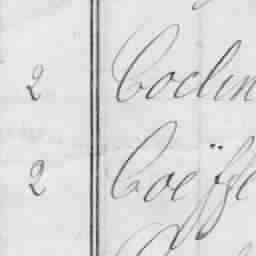 2 Coclin
2 Coëffe